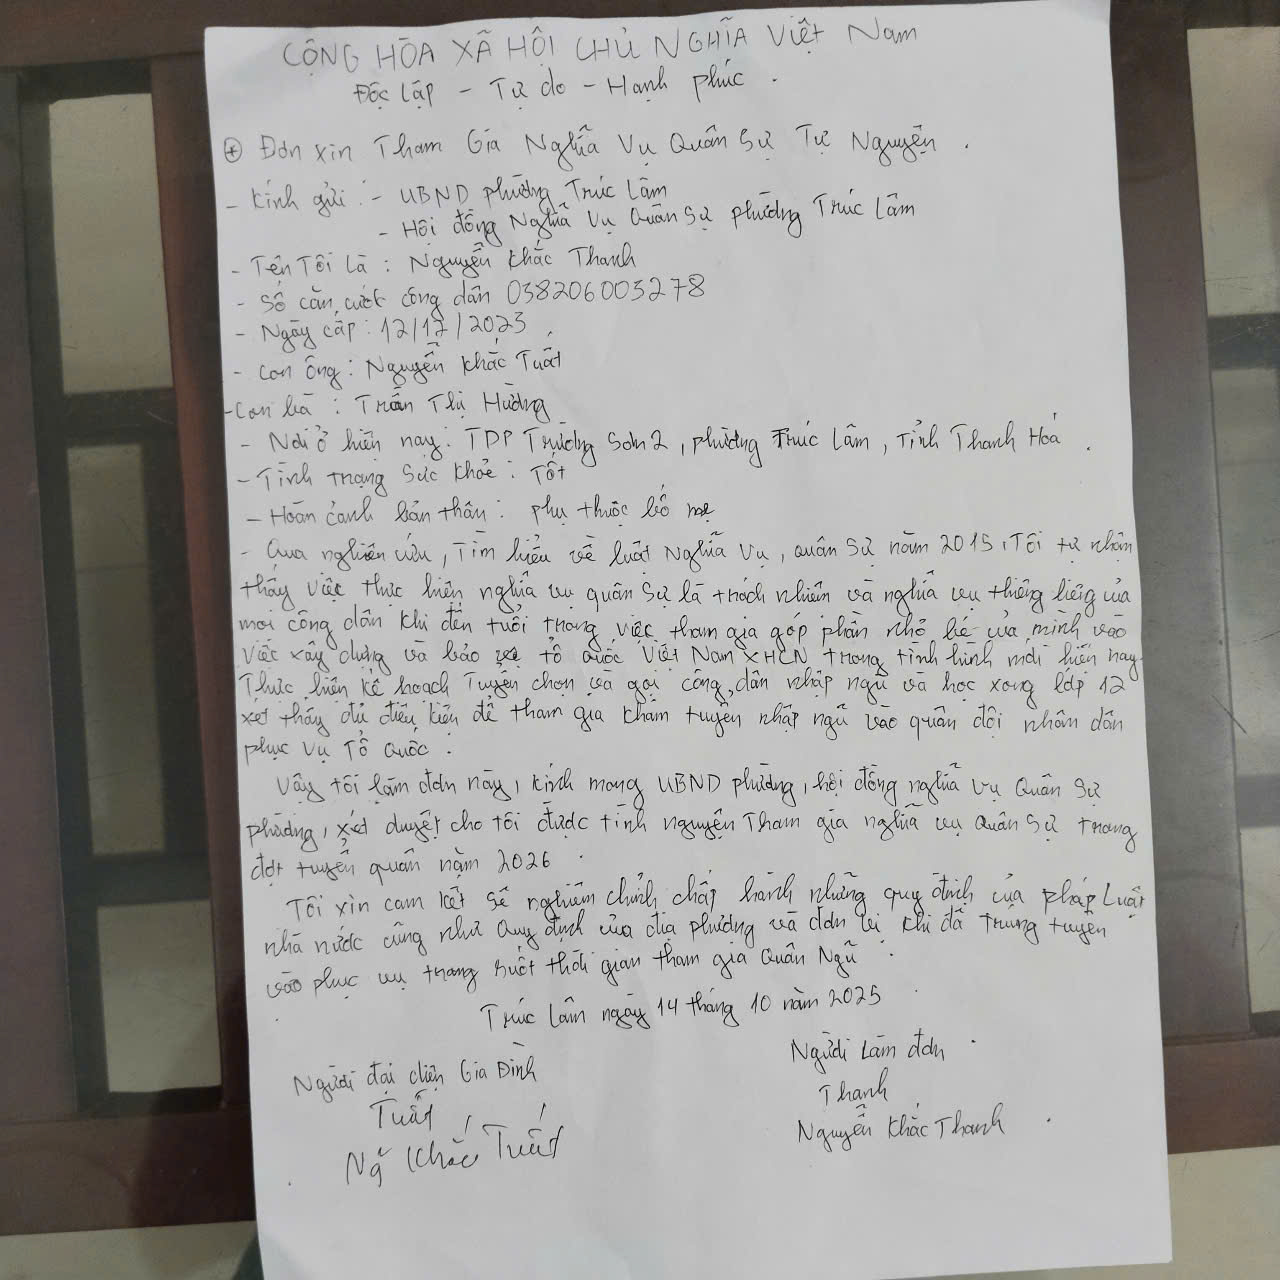 CỘNG HÒA XÃ HỘI CHỦ NGHĨA Việt Nam
Độc lập - Tự do - Hạnh phúc.
⊕ Đơn xin Tham Gia Nghĩa Vụ Quân Sự Tự Nguyện.
- Kính gửi: - UBND phường Trúc Lâm
- Hội đồng Nghĩa Vụ Quân Sự phường Trúc Lâm
- Tên Tôi Là: Nguyễn Khắc Thanh
- Số căn cước công dân 038206003278
- Ngày cấp: 12/12/2023
- Con ông: Nguyễn Khắc Tuất
- Con bà: Trần Thị Hường
- Nơi ở hiện nay: TDP Trường Sơn 2, phường Trúc Lâm, Tỉnh Thanh Hoá.
- Tình trạng Sức khỏe: Tốt
- Hoàn cảnh bản thân: phụ thuộc bố mẹ
- Qua nghiên cứu, Tìm hiểu về luật Nghĩa Vụ, quân Sự năm 2015, Tôi tự nhận
thấy việc thực hiện nghĩa vụ quân Sự là trách nhiệm và nghĩa vụ thiêng liêng của
mọi công dân khi đến tuổi trong việc tham gia góp phần nhỏ bé của mình vào
việc xây dựng và bảo vệ tổ quốc Việt Nam XHCN trong tình hình mới hiện nay.
Thực hiện kế hoạch Tuyển chọn và gọi công dân nhập ngũ và học xong lớp 12
xét thấy đủ điều kiện để tham gia khám tuyển nhập ngũ vào quân đội nhân dân
phục vụ Tổ Quốc.
Vậy tôi làm đơn này, kính mong UBND phường, hội đồng nghĩa vụ Quân Sự
phường, xét duyệt cho tôi được tình nguyện Tham gia nghĩa vụ Quân Sự trong
đợt tuyển quân năm 2026.
Tôi xin cam kết sẽ nghiêm chỉnh chấp hành những quy định của pháp Luật
nhà nước cũng như Quy định của địa phương và đơn vị khi đã Trúng tuyển
vào phục vụ trong suốt thời gian tham gia Quân Ngũ.
Trúc Lâm ngày 14 tháng 10 năm 2025
Người đại diện Gia Đình
Tuất
Ng Khắc Tuất
Người Làm đơn
Thanh
Nguyễn Khắc Thanh